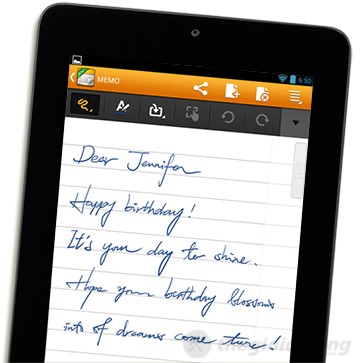 6:50
MEMO
Dear Jennifer
Happy birthday!
It's your day to shine.
Hope your birthday blossoms
into of dreams come ture!